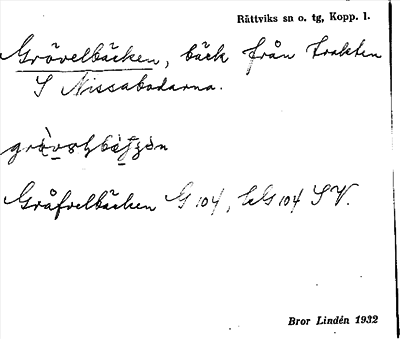 Rättviks sn o. tg, Kopp. l.
Grövelbäcken, bäck från trakten
S Nissabodarna.
Gråfvelbäcken G 104, LG 104 SV.
Bror Lindén 1932